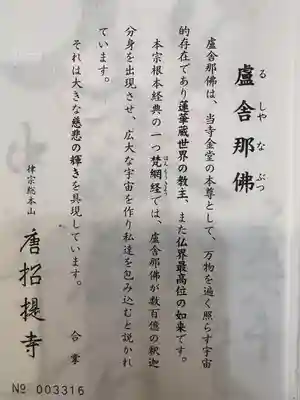 盧舎那佛
る しや な ぶつ
盧舎那佛は、当寺金堂の本尊として、万物を遍く照らす宇宙
的存在であり蓮華蔵世界の教主、また仏界最高位の如来です。
本宗根本経典の一つ梵網経では、盧舎那佛が数百億の釈迦
ぼんもうきょう
分身を出現させ、広大な宇宙を作り私達を包み込むと説かれ
ています。
それは大きな慈悲の輝きを具現しています。 合掌
律宗総本山
唐招提寺
№ 003316